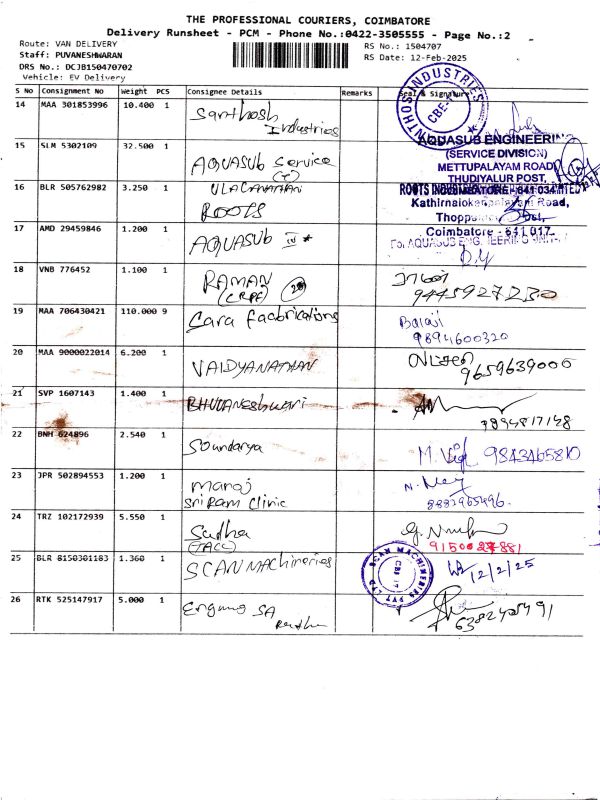 THE PROFESSIONAL COURIERS, COIMBATORE
Delivery Runsheet - PCM - Phone No.:0422-3505555 - Page No.:2
Route: VAN DELIVERY
RS No.: 1504707
Staff: PUVANESHWARAN
RS Date: 12-Feb-2025
DRS No.: DCJB150470702
Vehicle: EV Delivery
S No Consignment No Weight PCS Consignee Details Remarks Seal & Signature
14 MAA 301853996 10.400 1 Santhosh
Industries
15 SLM 5302109 32.500 1 AQUASUB Service
(T)
AQUASUB ENGINEERING
(SERVICE DIVISION)
METTUPALAYAM ROAD
THUDIYALUR POST,
COIMBATORE - 641 034
16 BLR 505762982 3.250 1 ULAGANATHAN
ROOTS
ROOTS INDUSTRIES LIMITED
Kathirnaickenpalayam Road,
Coimbatore - 641 017.
17 AMD 29459846 1.200 1 AQUASUB IV *
For AQUASUB ENGINEERING UNIT-IV
18 VNB 776452 1.100 1 RAMAN
(CRPF)
9445927230
19 MAA 706430421 110.000 9 Cara fabbrications
Balaji
9894600320
20 MAA 9000022014 6.200 1 VAIDYANATHAN
9659639006
21 SVP 1607143 1.400 1 BHUVANESHWARI
7894817148
22 BNH 624896 2.540 1 Soundarya
9843465810
23 JPR 502894553 1.200 1 manoj
Sri Ram Clinic
8882965496.
24 TRZ 102172939 5.550 1 Sudha
(TACS)
9150027881
25 BLR 8150301183 1.360 1 SCAN MACHineries
SCAN MACHINERIES PVT LTD
CBE 17
12/2/25
26 RTK 525147917 5.000 1
6382405491